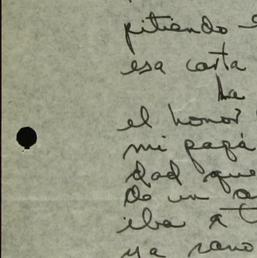 pitiendo
esa carta
La
el honor
mi papá
dad que
De un
iba a
ya